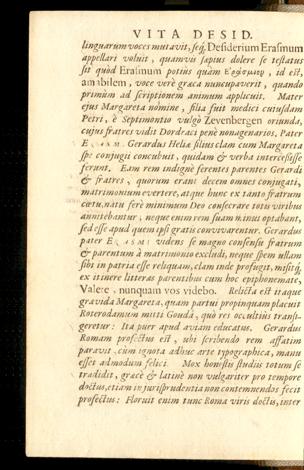 VITA DESID.
linguarum voces mutavit, seq́; Desiderium Erasmum
appellari voluit, quamvis sæpius dolere se testatus
sit quòd Erasmum potius quàm Ἐράσμιον, id est,
amabilem, voce verè græca nuncupaverit, quando
primùm ad scriptionem animum applicuit. Mater
ejus Margareta nomine, filia fuit medici cujusdam
Petri, è Septimontio vulgò Zevenbergen oriunda,
cujus fratres vidit Dordraci penè nonagenarios. Pater
Gerardus Heliæ filius clam cum Margareta
spe conjugii concubuit, quidam & verba intercessisse
ferunt. Eam rem indignè ferentes parentes Gerardi
& fratres, quorum erant decem omnes conjugati,
matrimonium evertere, atque hunc ex tanto fratrum
cœtu, natu ferè minimum Deo consecrare totis viribus
annitebantur, neque enim rem suam minui optabant,
sed esse apud quem ipsi gratis convivarentur. Gerardus
pater ERASMI videns se magno consensu fratrum
& parentum à matrimonio excludi, neque spem ullam
sibi in patria esse reliquam, clam inde profugit, misitq́;
ex itinere litteras parentibus cum hoc epiphonemate,
Valete, nunquam vos videbo. Relicta est itaque
gravida Margareta, quam partui propinquam placuit
Roterodamum mitti Gouda, quò res occultius transi-
geretur: Ita puer apud aviam educatus. Gerardus
Romam profectus est, ubi scribendo rem affatim
paravit, cùm ignota adhuc arte typographica, manu
esset admodum felici. Mox honestis studiis totum se
tradidit, græcè & latinè non vulgariter pro tempore
doctus, etiam in jurisprudentia non contemnendos fecit
profectus: Floruit enim tunc Roma viris doctis, inter